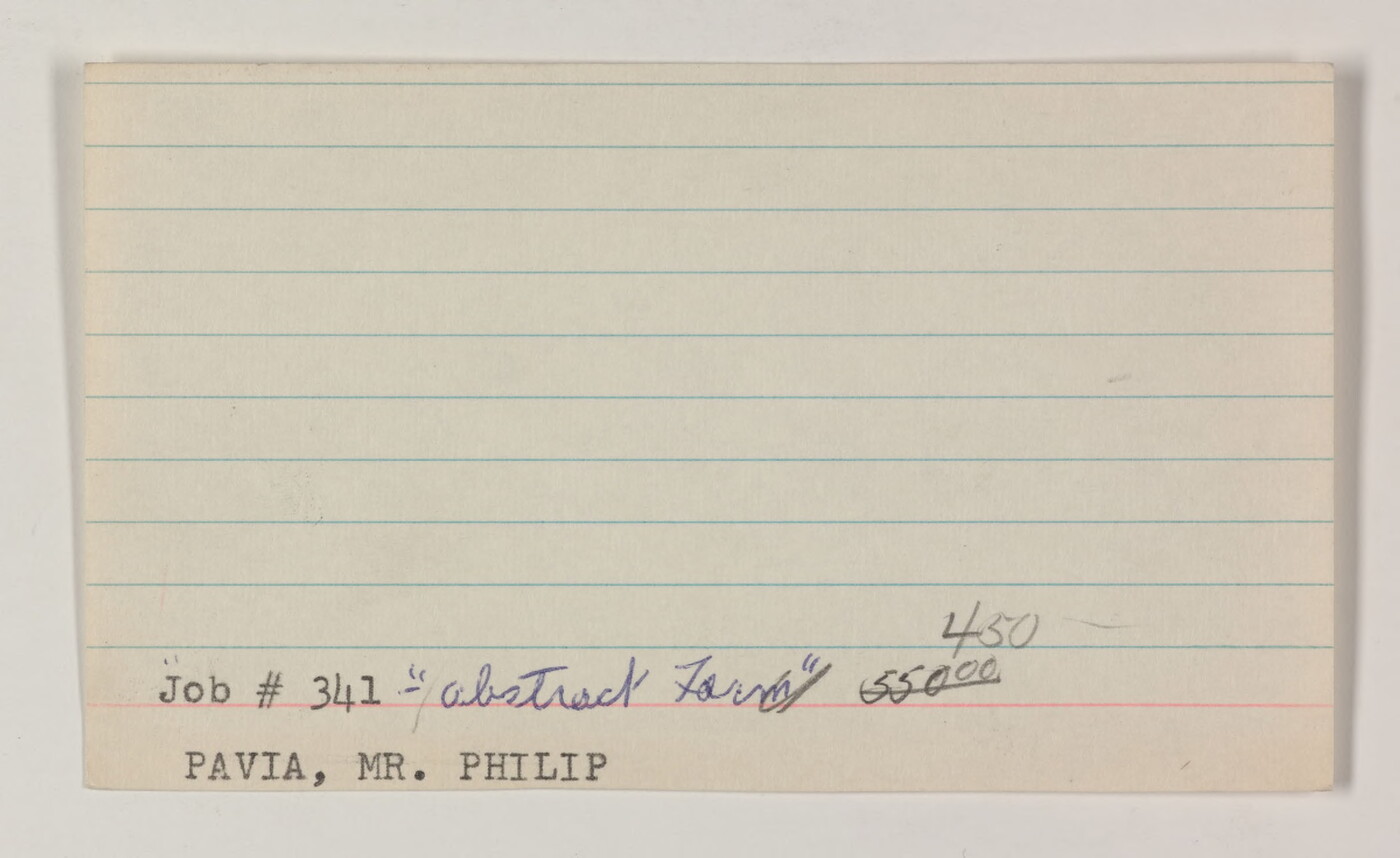 450 —
"Job # 341 - "abstract Form" 550 00
PAVIA, MR. PHILIP